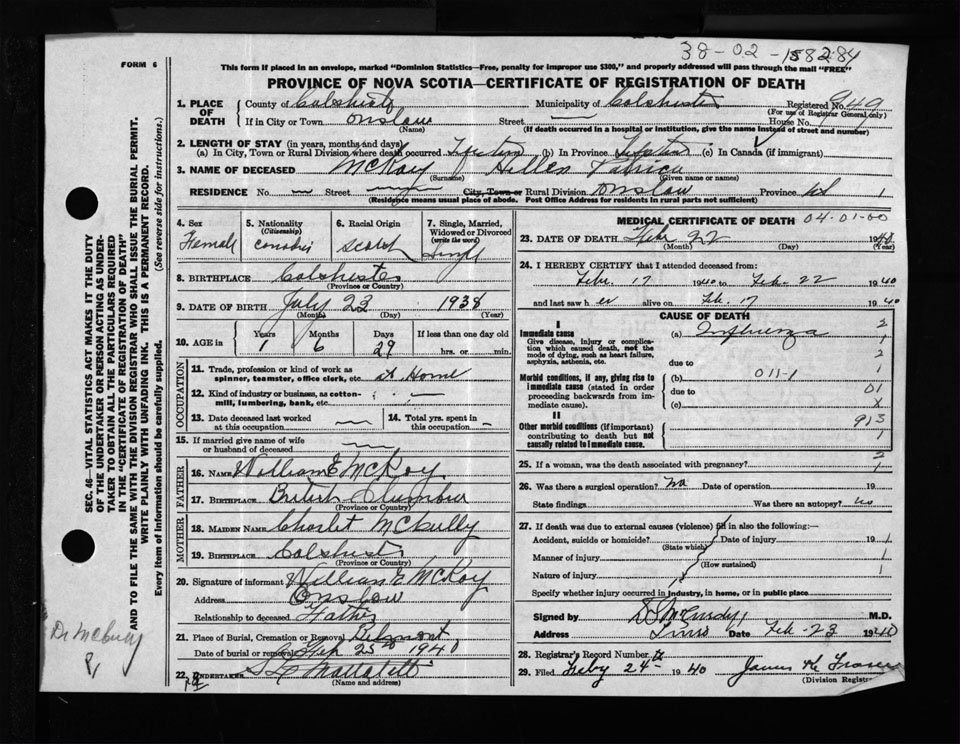 38-02-158284
FORM 6
This form if placed in an envelope, marked "Dominion Statistics—Free, penalty for improper use $300," and properly addressed will pass through the mail "FREE"
PROVINCE OF NOVA SCOTIA—CERTIFICATE OF REGISTRATION OF DEATH
1. PLACE OF DEATH County of Colchester Municipality of Colchester Registered No. 949
(For use of Registrar General only)
If in City or Town Onslow Street House No.
(Name) (If death occurred in a hospital or institution, give the name instead of street and number)
2. LENGTH OF STAY (in years, months and days)
(a) In City, Town or Rural Division where death occurred Lifetime (b) In Province (c) In Canada (if immigrant)
3. NAME OF DECEASED McKay Hellen
(Surname) (Given name or names)
RESIDENCE No. Street City, Town or Rural Division Onslow Province NS 1
(Residence means usual place of abode. Post Office Address for residents in rural parts not sufficient)
4. Sex Female
5. Nationality (Citizenship)
6. Racial Origin Scotch
7. Single, Married, Widowed or Divorced (write the word) Single
8. BIRTHPLACE Colchester
(Province or Country)
9. DATE OF BIRTH July 23 1938
(Month) (Day) (Year)
10. AGE Years 1 Months 6 Days 29 If less than one day old
hrs. or min.
OCCUPATION
11. Trade, profession or kind of work as spinner, teamster, office clerk, etc. at Home
12. Kind of industry or business, as cotton-mill, lumbering, bank, etc.
13. Date deceased last worked at this occupation
14. Total yrs. spent in this occupation
15. If married give name of wife or husband of deceased
FATHER
16. NAME William E McKay
17. BIRTHPLACE British Columbia
(Province or Country)
MOTHER
18. MAIDEN NAME McCully
19. BIRTHPLACE Colchester
(Province or Country)
20. Signature of informant William E McKay
Address Onslow
Relationship to deceased Father
21. Place of Burial, Cremation or Removal Belmont
Date of burial or removal Feb 25th 1940
22. UNDERTAKER
(Name and address)
MEDICAL CERTIFICATE OF DEATH 04-01-00
23. DATE OF DEATH Feb 22 1940
(Month) (Day) (Year)
24. I HEREBY CERTIFY that I attended deceased from:
Feb. 17 1940 to Feb-22 1940
and last saw h er alive on Feb. 17 1940
CAUSE OF DEATH
I
Immediate cause (a) Influenza
Give disease, injury or complication which caused death, not the mode of dying, such as heart failure, asphyxia, asthenia, etc.
due to
Morbid conditions, if any, giving rise to immediate cause (stated in order proceeding backwards from immediate cause).
(b) 011-1
due to
(c)
II
Other morbid conditions (if important) contributing to death but not causally related to immediate cause.
2
1
2
1
01
X
913
1
25. If a woman, was the death associated with pregnancy? 2
1
26. Was there a surgical operation? No Date of operation 19
State findings Was there an autopsy? no
27. If death was due to external causes (violence) fill in also the following:—
Accident, suicide or homicide? Date of injury 19 1
(State which)
Manner of injury 1
(How sustained)
Nature of injury 1
Specify whether injury occurred in industry, in home, or in public place
Signed by McCurdy M.D.
Address Truro Date Feb-23 1940
28. Registrar's Record Number
29. Filed Feby 24- 1940 James
(Division Registrar)
SEC. 46—VITAL STATISTICS ACT MAKES IT THE DUTY
OF THE UNDERTAKER OR PERSON ACTING AS UNDERTAKER TO OBTAIN ALL THE PARTICULARS REQUIRED
IN THE "CERTIFICATE OF REGISTRATION OF DEATH"
AND TO FILE THE SAME WITH THE DIVISION REGISTRAR WHO SHALL ISSUE THE BURIAL PERMIT.
WRITE PLAINLY WITH UNFADING INK. THIS IS A PERMANENT RECORD.
Every item of information should be carefully supplied. (See reverse side for instructions.)
Dr McCully